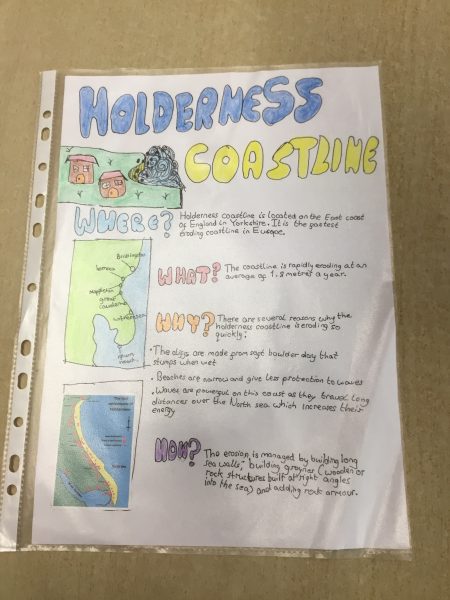 HOLDERNESS
COASTLINE
WHERE?
Holderness coastline is located on the East coast
of England in Yorkshire. It is the fastest
eroding coastline in Europe.
Bridlington
hornsea
Mappleton
great
cowdenne
withernsea
spurn
head
WHAT?
The coastline is rapidly eroding at an
average of 1.8 metres a year.
WHY?
There are several reasons why the
holderness coastline is eroding so
quickly:
· The cliffs are made from soft boulder clay that
slumps when wet
· Beaches are narrow and give less protection to waves
· Waves are powerful on this coast as they travel long
distances over the North sea which increases their
energy
HOW?
The erosion is managed by building long
sea walls, building groynes (wooden or
rock structures built at right angles
into the sea) and adding rock armour.